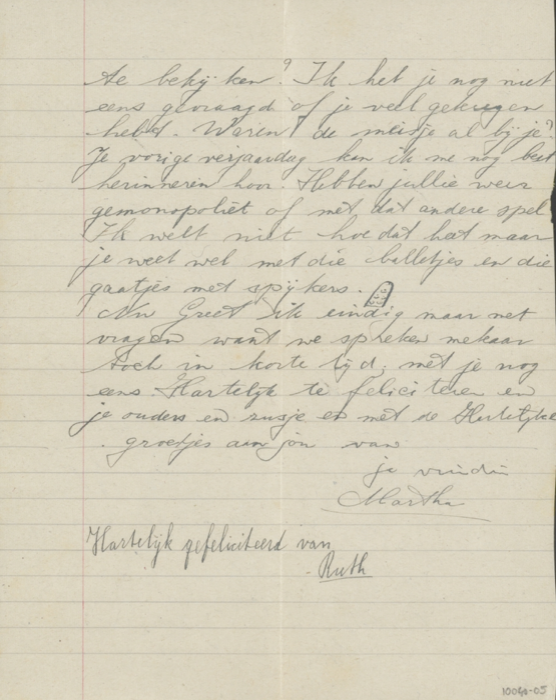 te bekijken? Ik heb je nog niet
eens gevraagd of je veel gekregen
hebt. Waren de meisje al bij je?
Je vorige verjaardag kan ik me nog best
herinneren hoor. Hebben jullie weer
gemonopoliët of met dat andere spel
Ik weet niet hoe dat heet maar
je weet wel met die balletjes en die
gaatjes met spijkers.
Nu Greet ik eindig maar met
vragen want we spreken mekaar
toch in korte tijd, met je nog
eens Hartelijk te feliciteren en
je ouders en zusje en met de Hartelijke
groetjes aan jou van
je vriendin
Martha
Hartelijk gefeliciteerd van
Ruth
10040-05